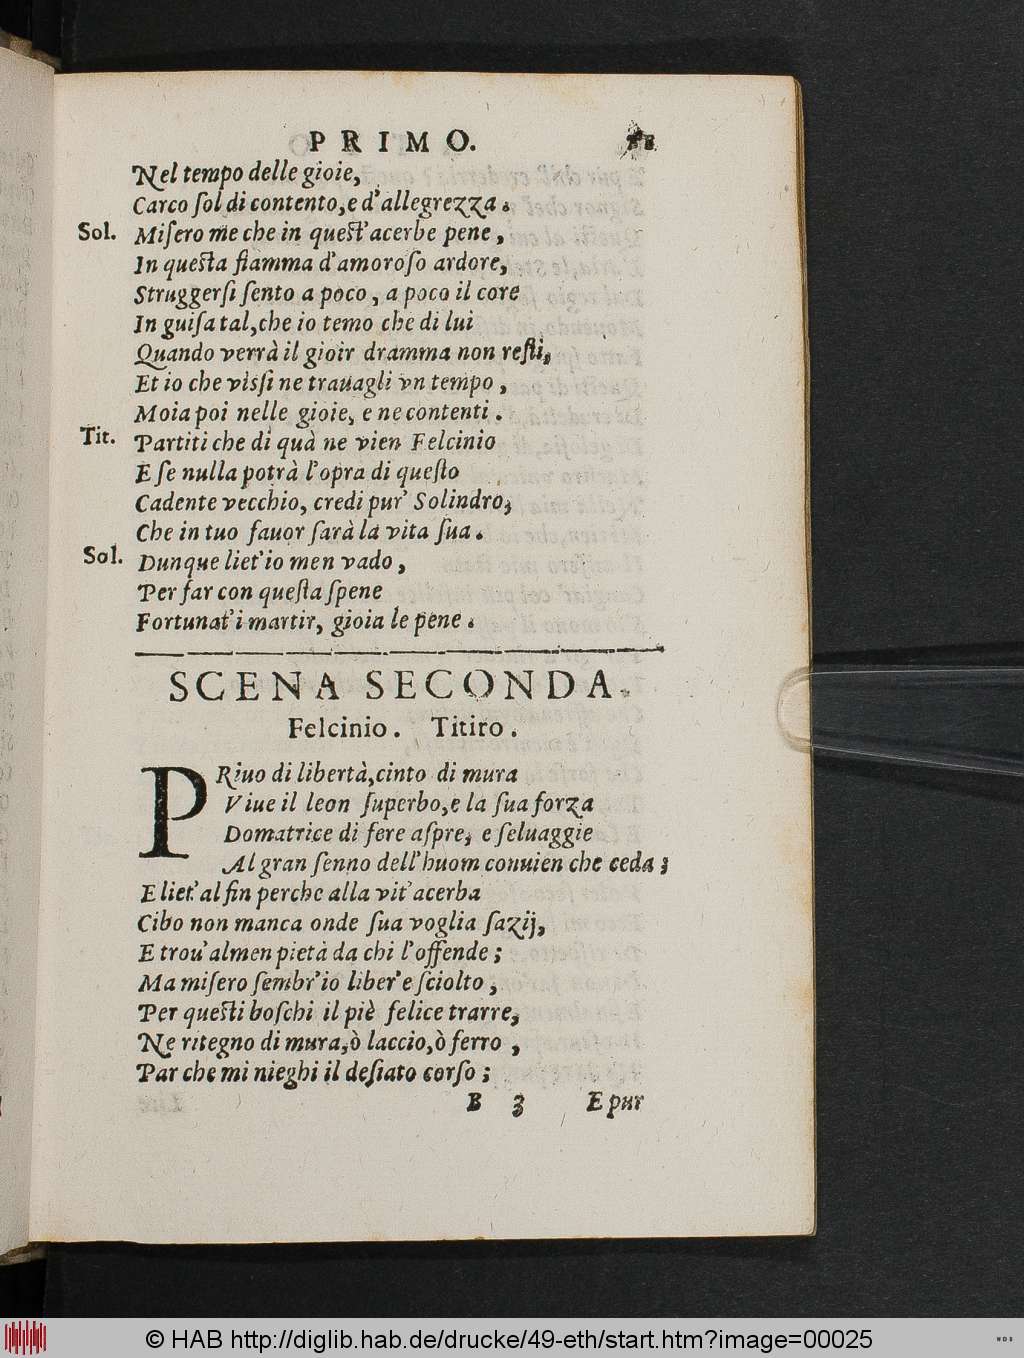 PRIMO.
Nel tempo delle gioie,
Carco ſol di contento, e d'allegrezza.
Sol. Miſero me che in queſt'acerbe pene,
In queſta fiamma d'amoroſo ardore,
Struggerſi ſento a poco, a poco il core
In guiſa tal, che io temo che di lui
Quando verrà il gioir dramma non reſti,
Et io che viſſi ne trauagli vn tempo,
Moia poi nelle gioie, e ne contenti.
Tit. Partiti che di quà ne vien Felcinio
E ſe nulla potrà l'opra di queſto
Cadente vecchio, credi pur' Solindro,
Che in tuo fauor ſarà la vita ſua.
Sol. Dunque liet'io men vado,
Per far con queſta ſpene
Fortunat'i martir, gioia le pene.
SCENA SECONDA.
Felcinio. Titiro.
PRiuo di libertà, cinto di mura
Viue il leon ſuperbo, e la ſua forza
Domatrice di fere aſpre, e ſeluaggie
Al gran ſenno dell'huom conuien che ceda;
E liet' al fin perche alla vit' acerba
Cibo non manca onde ſua voglia ſazij,
E trou' almen pietà da chi l'offende;
Ma miſero ſembr'io liber' e ſciolto,
Per queſti boſchi il piè felice trarre,
Ne ritegno di mura, ò laccio, ò ferro,
Par che mi nieghi il deſiato corſo;
B 3 E pur
© HAB http://diglib.hab.de/drucke/49-eth/start.htm?image=00025